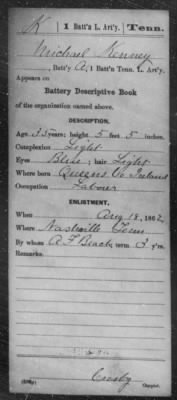 K | 1 Batt'n L. Art'y. | Tenn.
Michael Kenney
, Batt'y A, 1 Batt'n Tenn. L. Art'y.
Appears on
Battery Descriptive Book
of the organization named above.
DESCRIPTION.
Age 35 years; height 5 feet 5 inches.
Complexion Light
Eyes Blue; hair Light
Where born Queens Co Ireland
Occupation Labour
ENLISTMENT.
When Aug 18, 1862
Where Nashville Tenn
By whom A F Beach term 3 y'rs.
Remarks:
Crosby
Copyist.